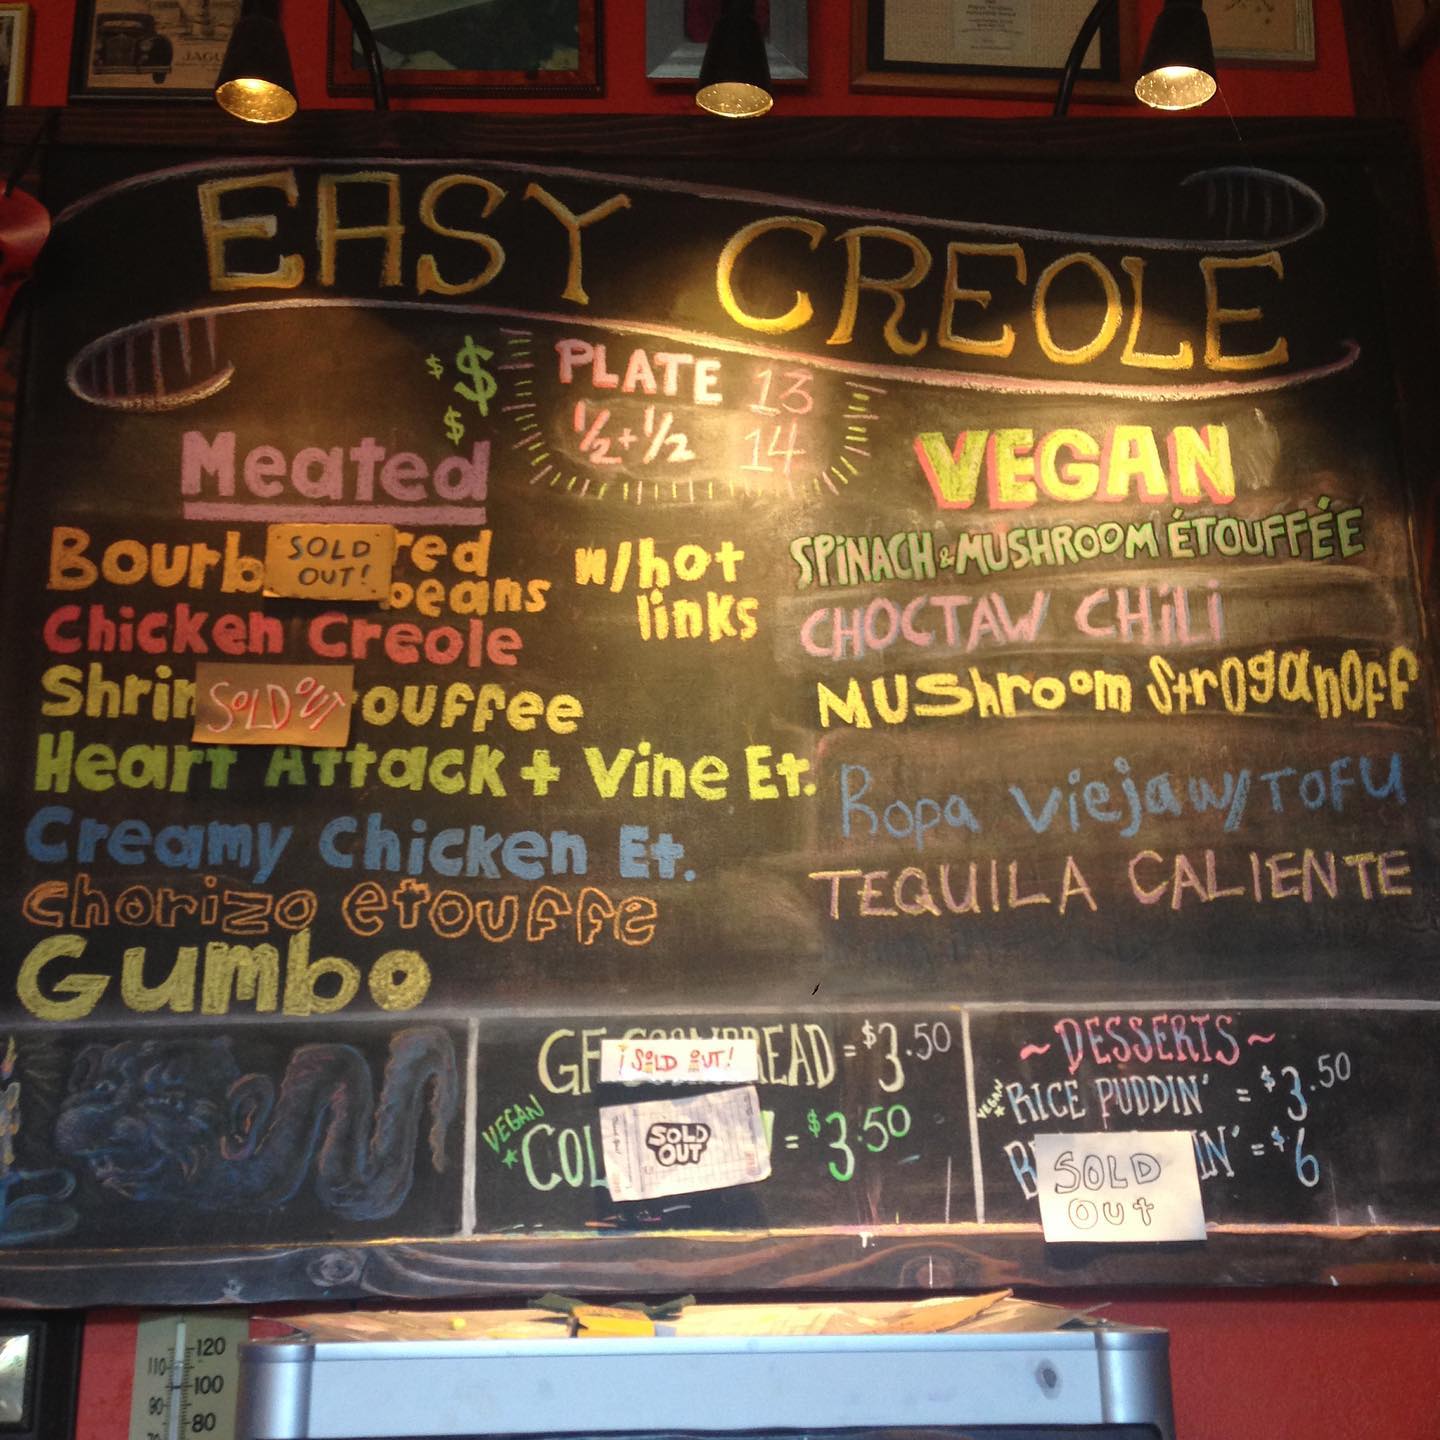 JAGU
EASY CREOLE
$ $ $
PLATE 13
½+½ 14
Meated
Bourb SOLD OUT! red beans w/hot links
Chicken Creole
Shrim SOLD OUT touffee
Heart Attack + Vine Et.
Creamy Chicken Et.
Chorizo etouffe
Gumbo
VEGAN
SPINACH & MUSHROOM ÉTOUFFÉE
CHOCTAW CHiLi
MUShroom StrOganOff
Ropa Vieja w/ TOFU
TEQUILA CALIENTE
GF CORNBREAD = $3.50
¡SOLD OUT!
VEGAN
COL = $3.50
SOLD OUT
~ DESSERTS ~
VEGAN
RICE PUDDIN' = $3.50
B IN' = $6
SOLD OUT
120
110
100
90
80